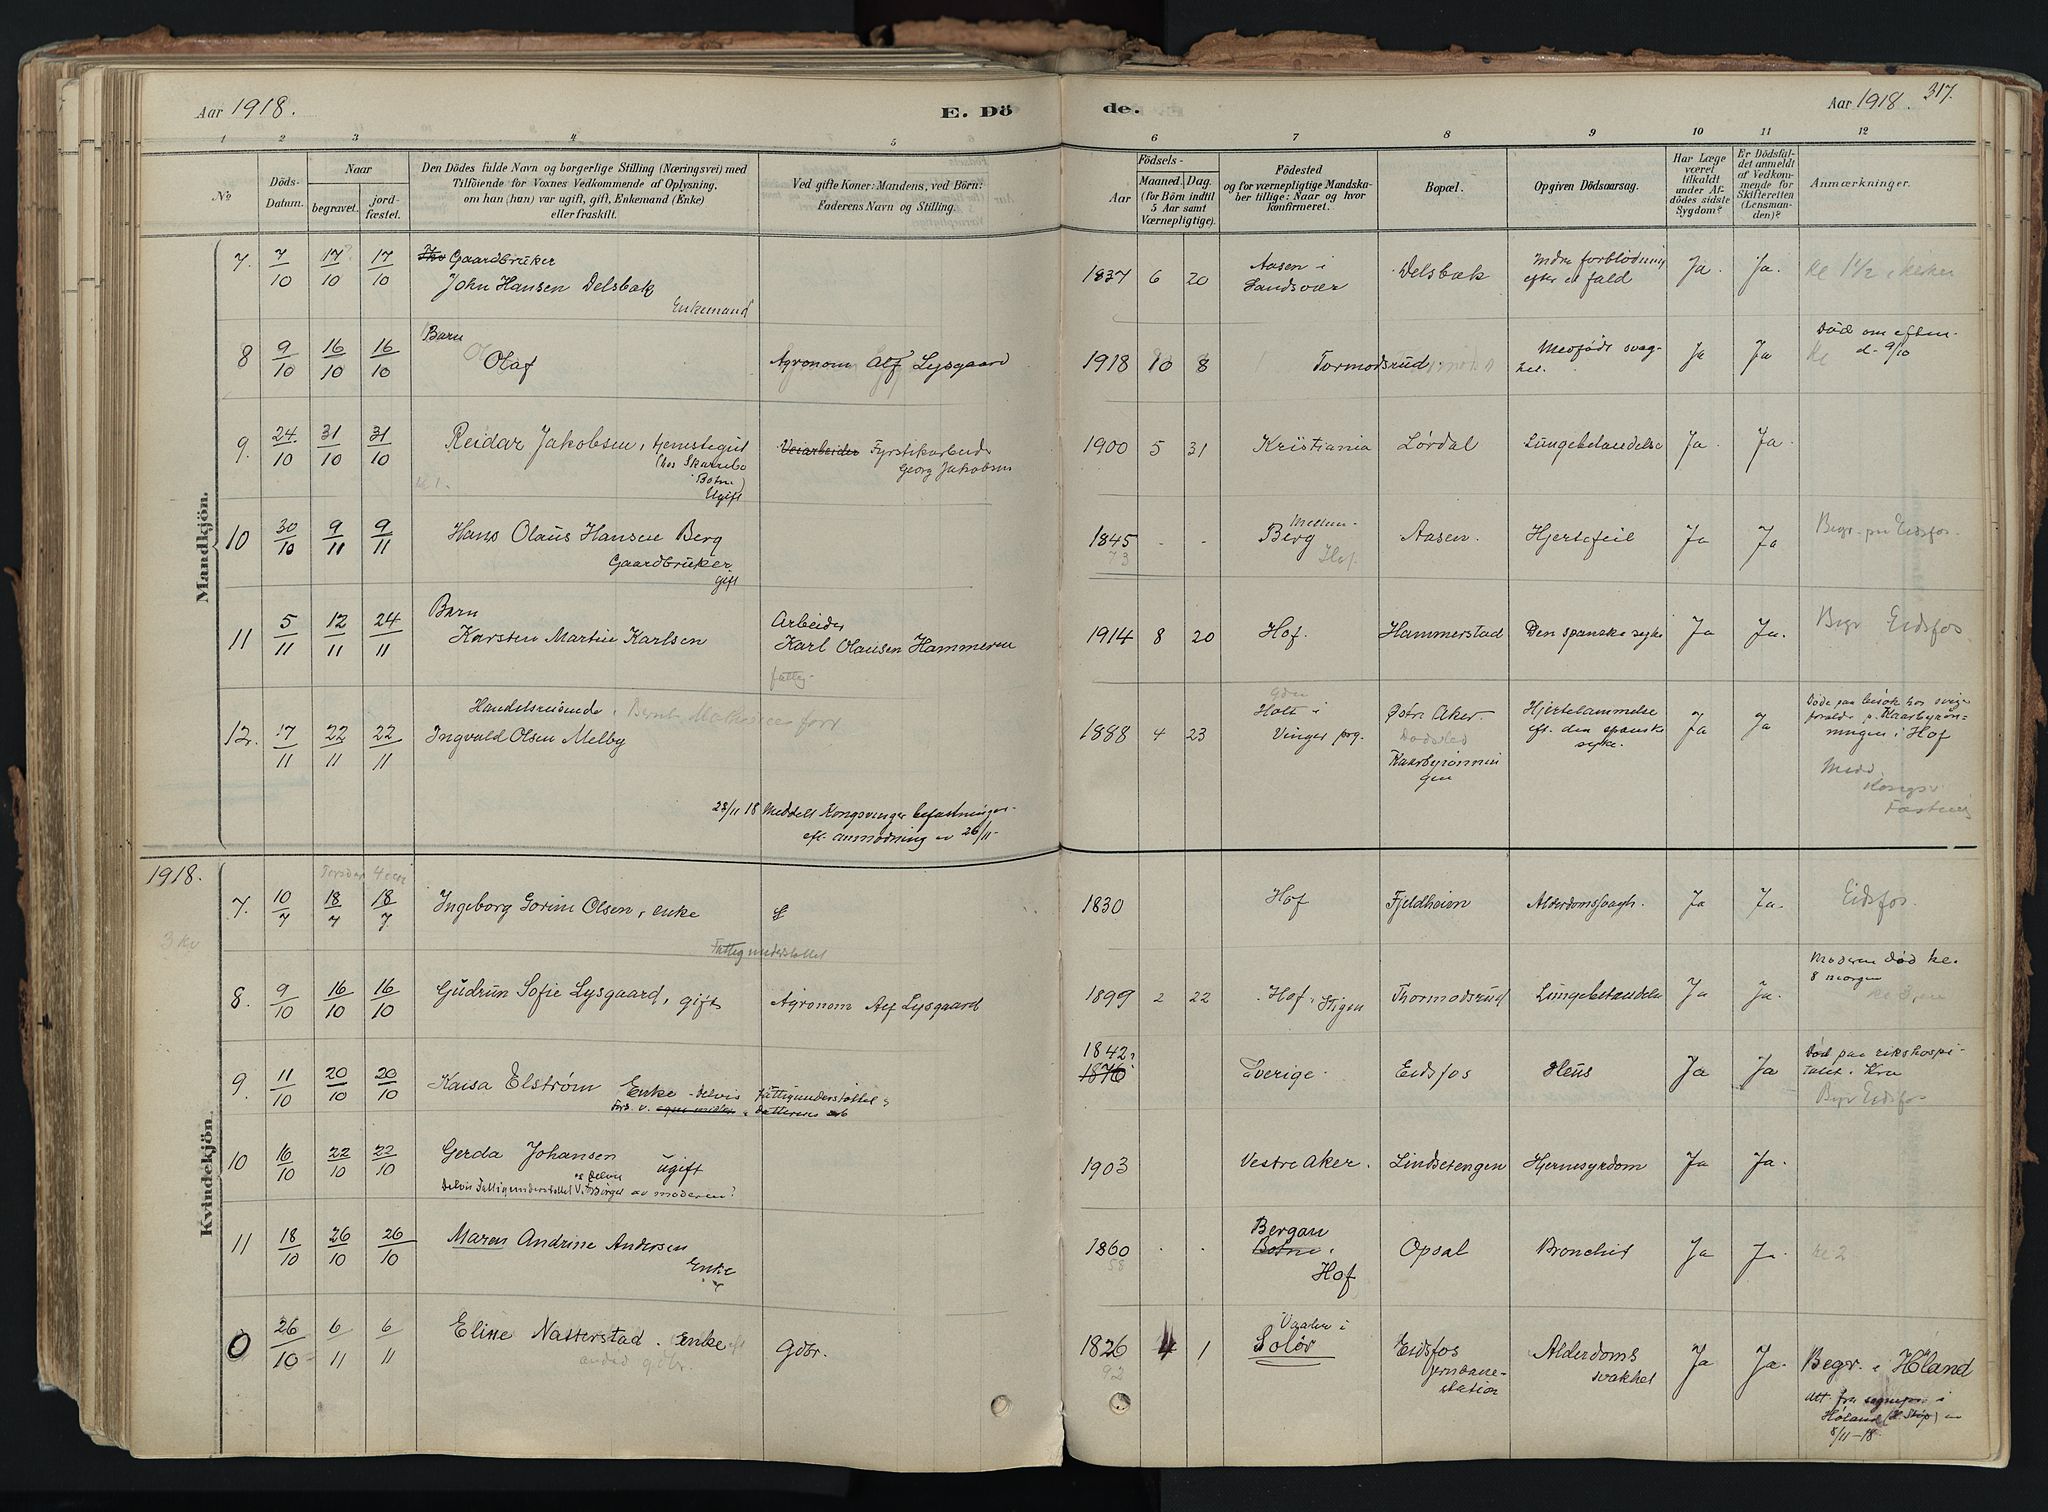 Aar 1918.
E. Dö
de.
Aar 1918.
317.
1 2 3 4 5 6 7 8 9 10 11 12
No
Döds-
Datum.
Naar
begravet.
jord-
fæstet.
Den Dödes fulde Navn og borgerlige Stilling (Næringsvei) med
Tilföiende for Voxnes Vedkommende af Oplysning,
om han (hun) var ugift, gift, Enkemand (Enke)
eller fraskilt.
Ved gifte Koner: Mandens, ved Börn:
Faderens Navn og Stilling.
Födsels-
Aar
Maaned. Dag.
(for Börn indtil
5 Aar samt
Værnepligtige).
Födested
og for værnepligtige Mandska-
ber tillige: Naar og hvor
konfirmeret.
Bopæl.
Opgiven Dödsaarsag.
Har Læge
været
tilkaldt
under Af-
dödes sidste
Sygdom?
Er Dödsfal-
det anmeldt
af Vedkom-
mende for
Skifteretten
(Lensman-
den)?
Anmærkninger.
Mandkjön.
7. 7/10 17/10 17/10 Gaardbruker
John Hansen Delsbak
Enkemand
1837 6 20 Aasen i
Sandsvær
Delsbak
Indre forblødning
efter et fald
Ja. Ja. kl 1½
8 9/10 16/10 16/10 Barn
Olaf
Agronom Alf Lysgaard
1918 10 8 Tormodsrud
Medfødt svag-
het.
Ja Ja
Død om efterm.
d. 9/10
9. 24/10 31/10 31/10 Reidar Jakobsen, tjenestegut
(hos
Botne)
Ugift
Veiarbeider Fyrstikarbeider
Georg Jakobsen
1900 5 31 Kristiania Lørdal Lungebetændelse Ja. Ja.
10 30/10 9/11 9/11 Hans Olaus Hansen Berg
Gaardbruker
gift
1845 - -
73
Mellem-
Berg
Hof.
Aasen. Hjertefeil Ja Ja Begr. paa Eidsfos.
11 5/11 12/11 24/11 Barn
Karsten Martin Karlsen
Arbeider
Karl Olausen Hammeren
fattig.
1914 8 20 Hof. Hammerstad Den spanske syke Ja Ja. Begr Eidsfos.
12. 17/11 22/11 22/11 Handelsreisende
Ingvald Olsen Melby
1888 4 23 Holt i
Vinger prg.
Østre Aker.
Dødssted
Kaarbyrønnin
gen
Hjertelammelse
eft. den spanske
syke.
Ja Ja
Døde paa besøk hos svige
forældre p. Kaarbyrøn-
ningen i Hof
Medd.
Kongsv.
23/11 18 Meddelt Kongsvinger befæstninger
eft. anmodning av 26/11-
1918.
Kvindekjön.
Torsdag 4
7. 10/7 18/7 18/7 Ingeborg Gorine Olsen, enke
1830 Hof Fjeldheim Alderdomssvagh. Ja Ja. Eidsfos.
Fattigunderstøttet
8. 9/10 16/10 16/10 Gudrun Sofie Lysgaard, gift Agronom Alf Lysgaard
1899 2 22 Hof. Stigen Thormodsrud Lungebetændelse Ja Ja.
Moderen død kl.
8 morgen
9. 11/10 20/10 20/10 Kaisa Elstrøm Enke - delvis fattigunderstøttet
Fors. v. egne midler Datteren
1842.
1876
Sverige. Eidsfos Ileus Ja Ja
Død paa rikshospi-
talet i Kra
Begr Eidsfos
10 16/10 22/10 22/10 Gerda Johansen
ugift
og delvis
Delvis Fattigunderstøttet V. Forsørget av moderen?
1903 Vestre Aker. Lindsetengen Hjernesygdom Ja Ja.
11 18/10 26/10 26/10 Maren Andrine Andersen
Enke
1860 . .
58
Bergan
Botne.
Hof
Opsal Bronchit Ja Ja. kl 2
0 26/10 6/11 6/11 Eline Natterstad. Enke
gdbr.
Gdbr.
1826 4 1
92
Vaaler i
Solør
Eidsfos
jernbane-
station
Alderdoms
svakhet
Ja Ja.
Begr. i Høland
att. fra sognepr i
Høland
8/11-18.